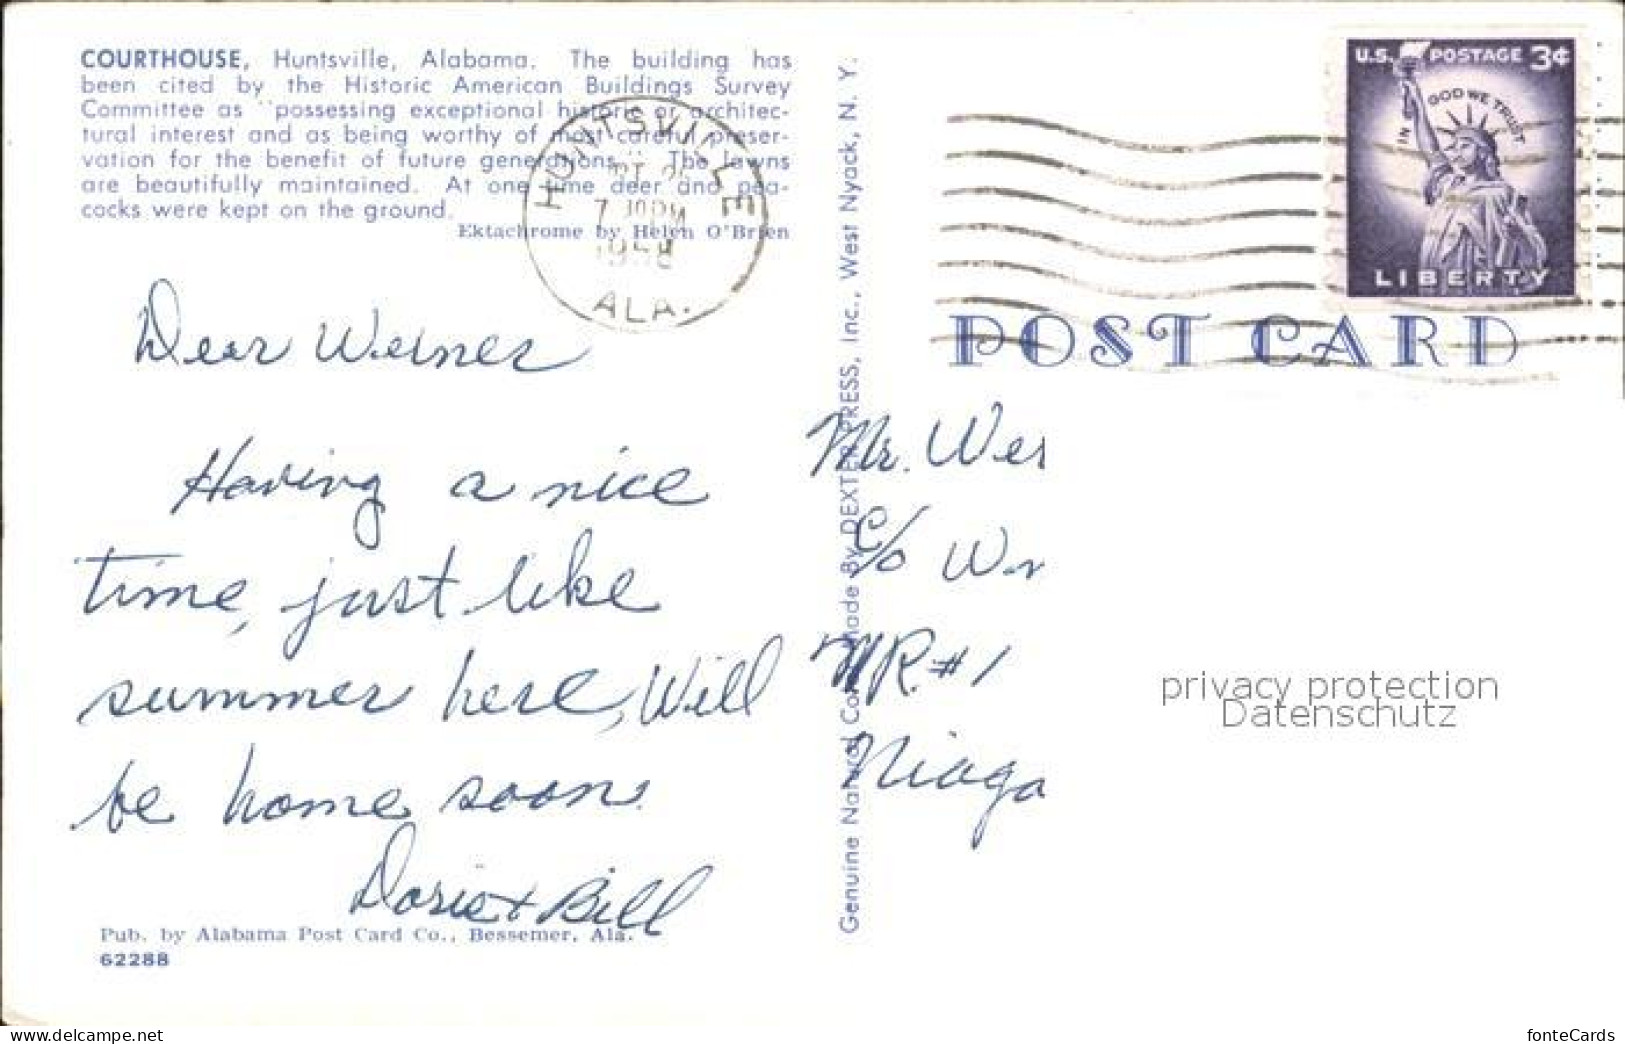 COURTHOUSE, Huntsville, Alabama. The building has
been cited by the Historic American Buildings Survey
Committee as "possessing exceptional historic or architec-
tural interest and as being worthy of most careful preser-
vation for the benefit of future generations." The lawns
are beautifully maintained. At one time deer and pea-
cocks were kept on the ground.
Ektachrome by Helen O'Brien
HUNTSVILLE
7 30 PM
1958
ALA.
U.S. POSTAGE 3¢
IN GOD WE TRUST
LIBERTY
POST CARD
Dear Werner
Having a nice
time, just like
summer here, Will
be home soon.
Doris + Bill
Pub. by Alabama Post Card Co., Bessemer, Ala.
62288
Genuine Natural Color Made By DEXTER PRESS, Inc., West Nyack, N. Y.
Mr. Wer
c/o
R. #1
Niaga
privacy protection
Datenschutz
www.delcampe.net
fonteCards